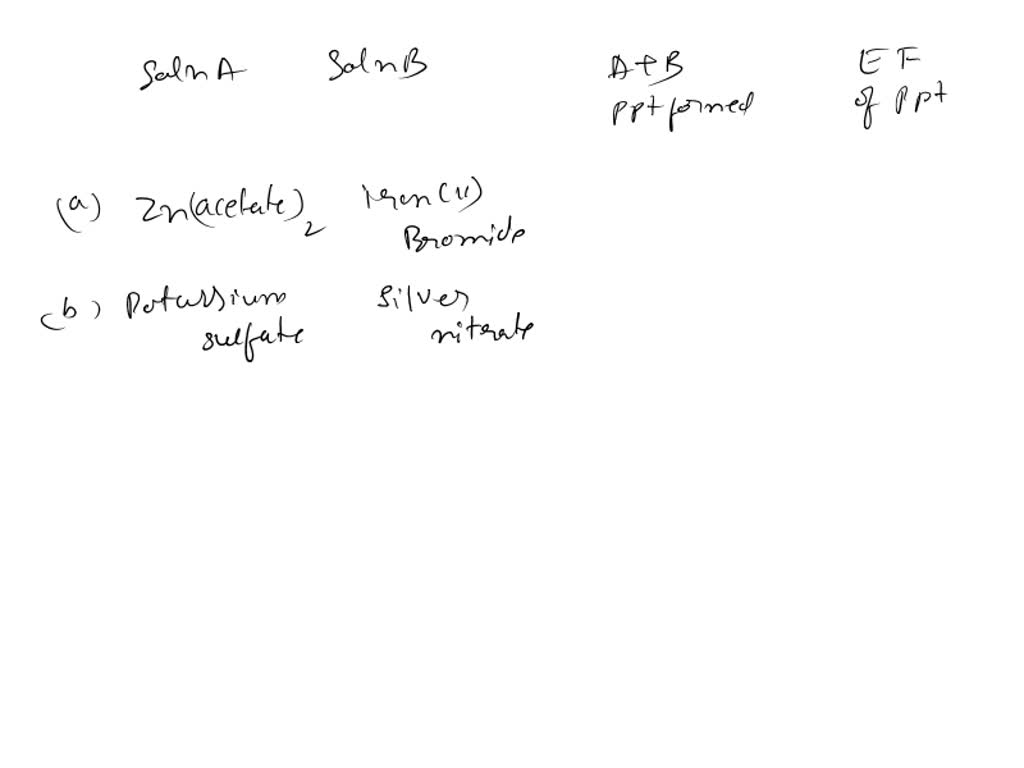 Soln A Soln B A+B EF
ppt formed of ppt
(a) Zn(acetate)2 Iron(II)
Bromide
(b) Potassium Silver
sulfate nitrate